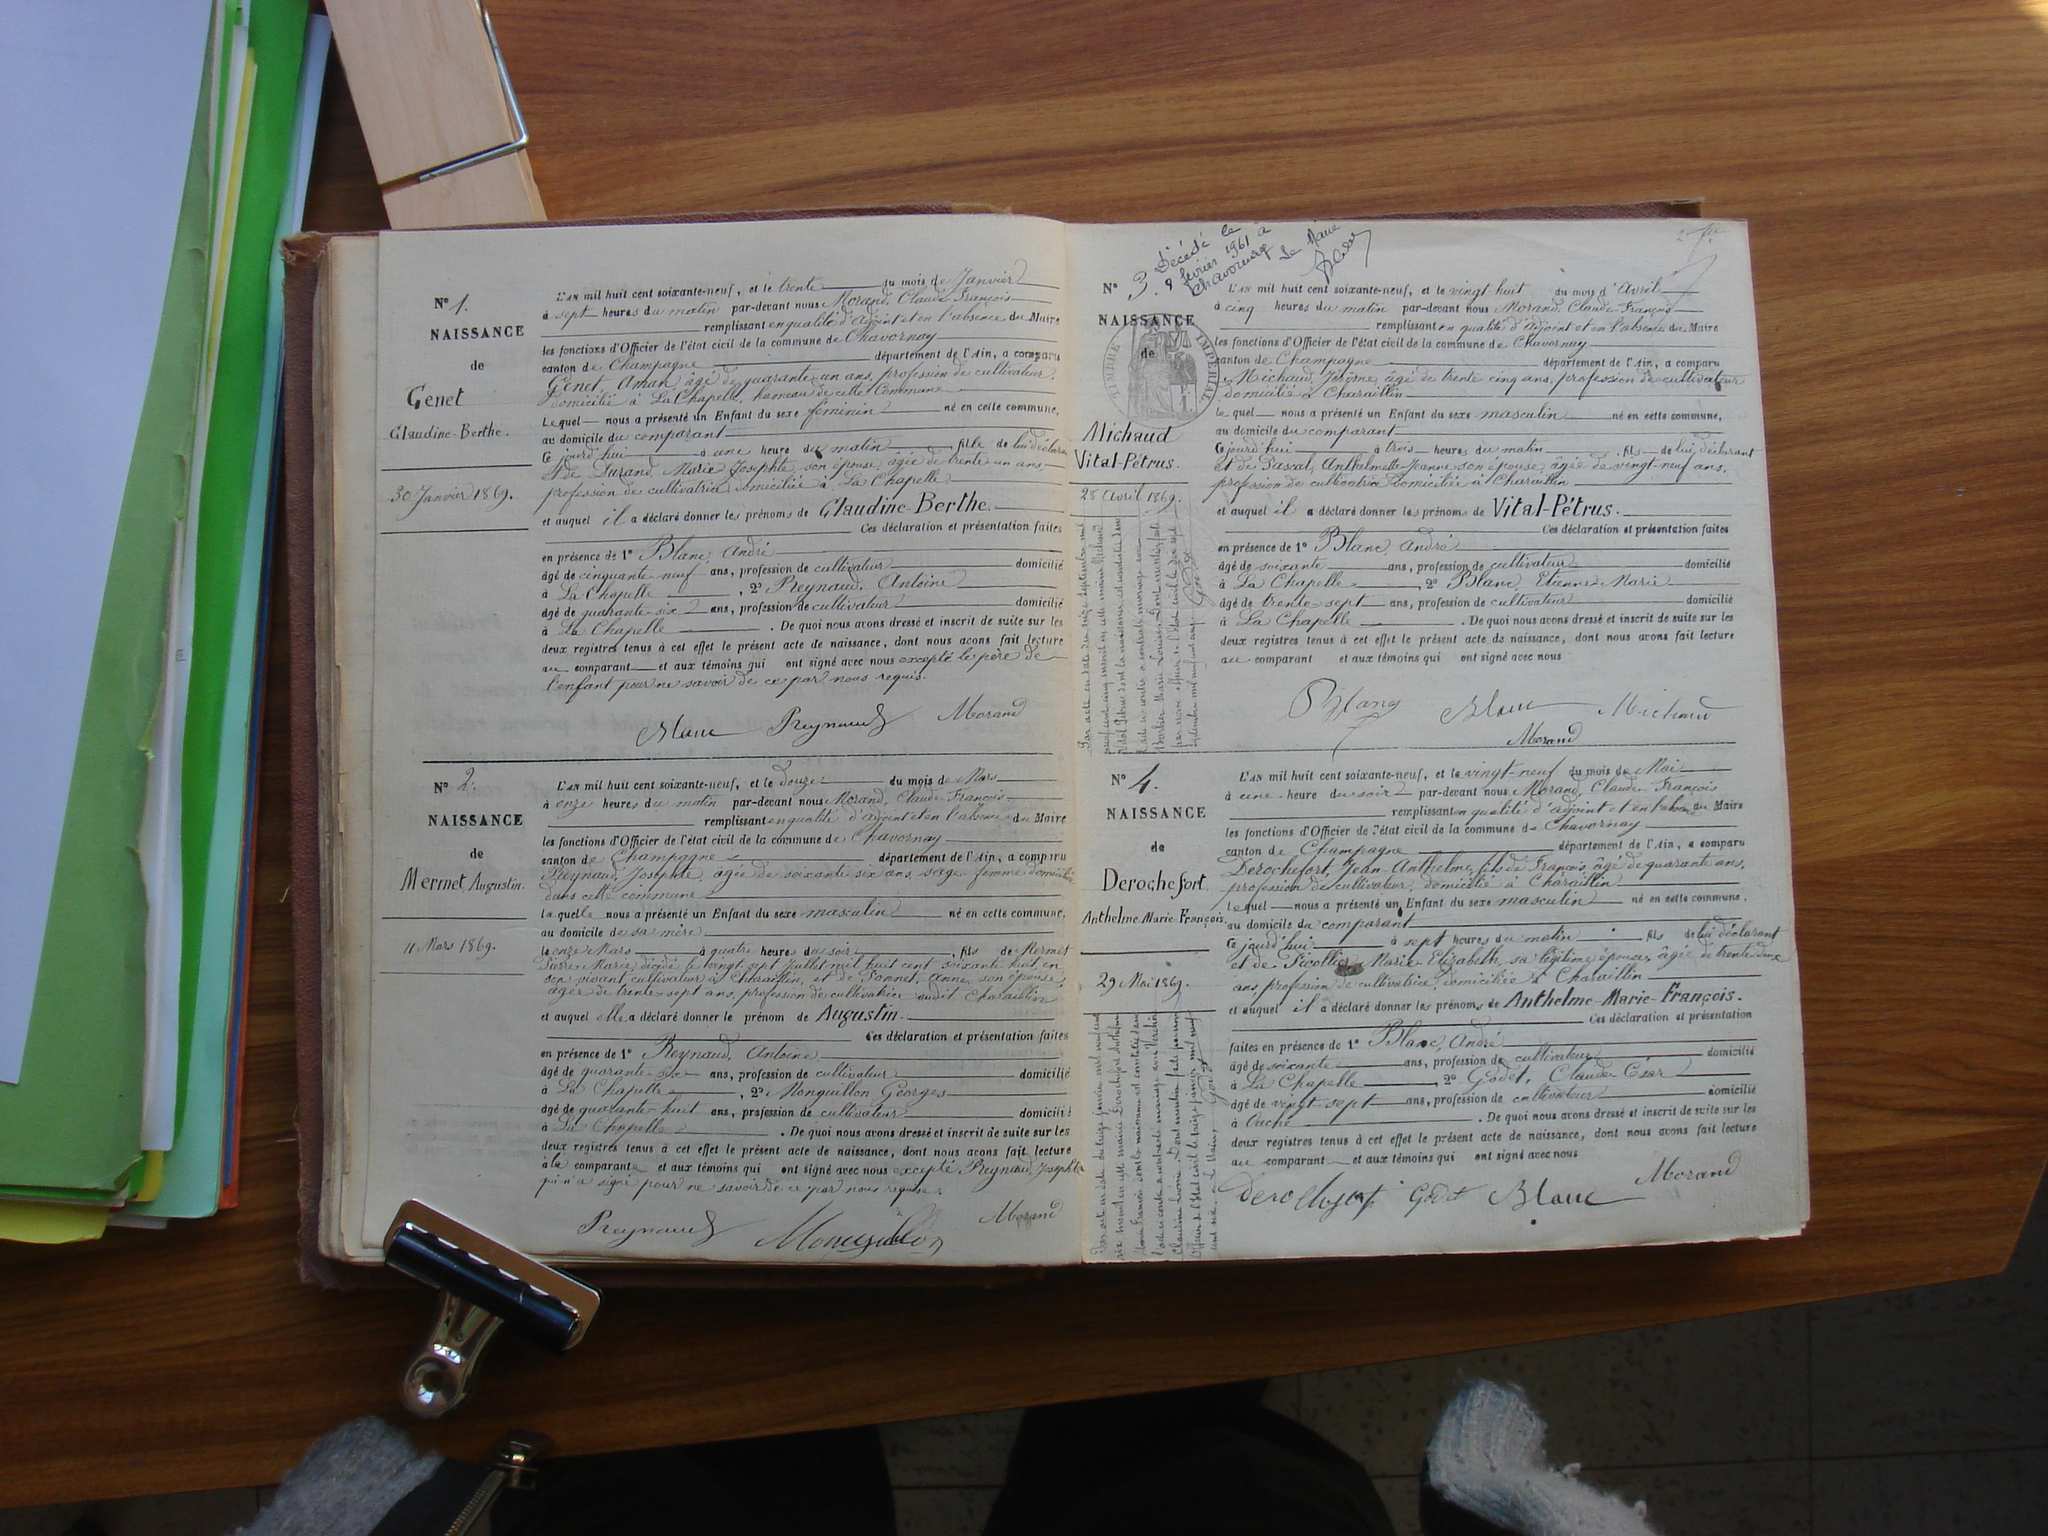 N° 1.
NAISSANCE
de
Genet
Claudine-Berthe.
30 Janvier 1869.
L'AN mil huit cent soixante-neuf, et le trente du mois de Janvier
à sept heures du matin par-devant nous Morand, Claude François
remplissant en qualité d'adjoint et en l'absence du Maire
les fonctions d'Officier de l'état civil de la commune de Chavornay
canton de Champagne département de l'Ain, a comparu
Genet, Aman, âgé de quarante-un ans, profession de cultivateur,
domicilié à La Chapelle, hameau de cette Commune
Lequel nous a présenté un Enfant du sexe féminin né en cette commune,
au domicile du comparant
Ce jourd'hui à une heure du matin, fille de lui déclarant
et de Durand, Marie Josephte, son épouse, âgée de trente un ans
profession de cultivatrice domiciliée à La Chapelle
et auquel il a déclaré donner les prénoms de Claudine-Berthe.
Ces déclaration et présentation faites
en présence de 1° Blanc, André
âgé de cinquante-neuf ans, profession de cultivateur domicilié
à La Chapelle, 2° Reynaud, Antoine
âgé de quarante-six ans, profession de cultivateur domicilié
à La Chapelle. De quoi nous avons dressé et inscrit de suite sur les
deux registres tenus à cet effet le présent acte de naissance, dont nous avons fait lecture
au comparant et aux témoins qui ont signé avec nous excepté le père de
l'enfant pour ne savoir de ce par nous requis.
Blanc Reynaud Morand
N° 2.
NAISSANCE
de
Mermet Augustin.
11 Mars 1869.
L'AN mil huit cent soixante-neuf, et le douze du mois de Mars
à onze heures du matin par-devant nous Morand, Claude François
remplissant en qualité d'adjoint et en l'absence du Maire
les fonctions d'Officier de l'état civil de la commune de Chavornay
canton de Champagne département de l'Ain, a comparu
Reynaud, Josephte, âgée de soixante six ans, sage femme domiciliée
dans cette commune
laquelle nous a présenté un Enfant du sexe masculin né en cette commune,
au domicile de sa mère
le onze Mars à quatre heures du soir, fils de Mermet
Pierre Marie, décédé le vingt sept Juillet mil huit cent soixante huit, en
son vivant cultivateur à Charaillin, et de Anne, son épouse,
âgée de trente-sept ans, profession de cultivatrice audit Charaillin
et auquel elle a déclaré donner le prénom de Augustin.
Ces déclaration et présentation faites
en présence de 1° Reynaud, Antoine
âgé de quarante-six ans, profession de cultivateur domicilié
à La Chapelle, 2° Monguillon Georges
âgé de quarante-huit ans, profession de cultivateur domicilié
à La Chapelle. De quoi nous avons dressé et inscrit de suite sur les
deux registres tenus à cet effet le présent acte de naissance, dont nous avons fait lecture
à la comparante et aux témoins qui ont signé avec nous excepté Reynaud, Josephte
qui n'a signé pour ne savoir de ce par nous requise.
Reynaud Monguillon Morand
2
N° 3.
Décédé le
9 février 1961 à
Chavornay
Le Maire
NAISSANCE
de
TIMBRE IMPERIAL
Michaud
Vital-Pétrus.
28 Avril 1869.
L'AN mil huit cent soixante-neuf, et le vingt huit du mois d'Avril
à cinq heures du matin par-devant nous Morand, Claude François
remplissant en qualité d'adjoint et en l'absence du Maire
les fonctions d'Officier de l'état civil de la commune de Chavornay
canton de Champagne département de l'Ain, a comparu
Michaud, Jérôme, âgé de trente cinq ans, profession de cultivateur
domicilié à Charaillin
lequel nous a présenté un Enfant du sexe masculin né en cette commune,
au domicile du comparant
Ce jourd'hui à trois heures du matin, fils de lui déclarant
et de Anthelmette Jeanne son épouse, âgée de vingt-neuf ans,
profession de cultivatrice domiciliée à Charaillin
et auquel il a déclaré donner les prénoms de Vital-Pétrus.
Ces déclaration et présentation faites
en présence de 1° Blanc, André
âgé de soixante ans, profession de cultivateur domicilié
à La Chapelle, 2° Blanc, Etienne Marie
âgé de trente-sept ans, profession de cultivateur domicilié
à La Chapelle. De quoi nous avons dressé et inscrit de suite sur les
deux registres tenus à cet effet le présent acte de naissance, dont nous avons fait lecture
au comparant et aux témoins qui ont signé avec nous
Blanc Blanc Michaud
Morand
N° 4.
NAISSANCE
de
Derochefort
Anthelme-Marie-François.
29 Mai 1869.
L'AN mil huit cent soixante-neuf, et le vingt-neuf du mois de Mai
à une heure du soir par-devant nous Morand, Claude François
remplissant en qualité d'adjoint et en l'absence du Maire
les fonctions d'Officier de l'état civil de la commune de Chavornay
canton de Champagne département de l'Ain, a comparu
Derochefort, Jean-Anthelme, fils de François, âgé de quarante ans,
profession de cultivateur, domicilié à Charaillin
lequel nous a présenté un Enfant du sexe masculin né en cette commune,
au domicile du comparant
Ce jourd'hui à sept heures du matin, fils de lui déclarant
et de Marie Elisabeth, sa légitime épouse, âgée de trente deux
ans, profession de cultivatrice, domiciliée à Charaillin
et auquel il a déclaré donner les prénoms de Anthelme-Marie-François.
Ces déclaration et présentation
faites en présence de 1° Blanc, André
âgé de soixante ans, profession de cultivateur domicilié
à La Chapelle, 2° Godet, Claude César
âgé de vingt-sept ans, profession de cultivateur domicilié
à Ouche. De quoi nous avons dressé et inscrit de suite sur les
deux registres tenus à cet effet le présent acte de naissance, dont nous avons fait lecture
au comparant et aux témoins qui ont signé avec nous
Derochefort Godet Blanc Morand